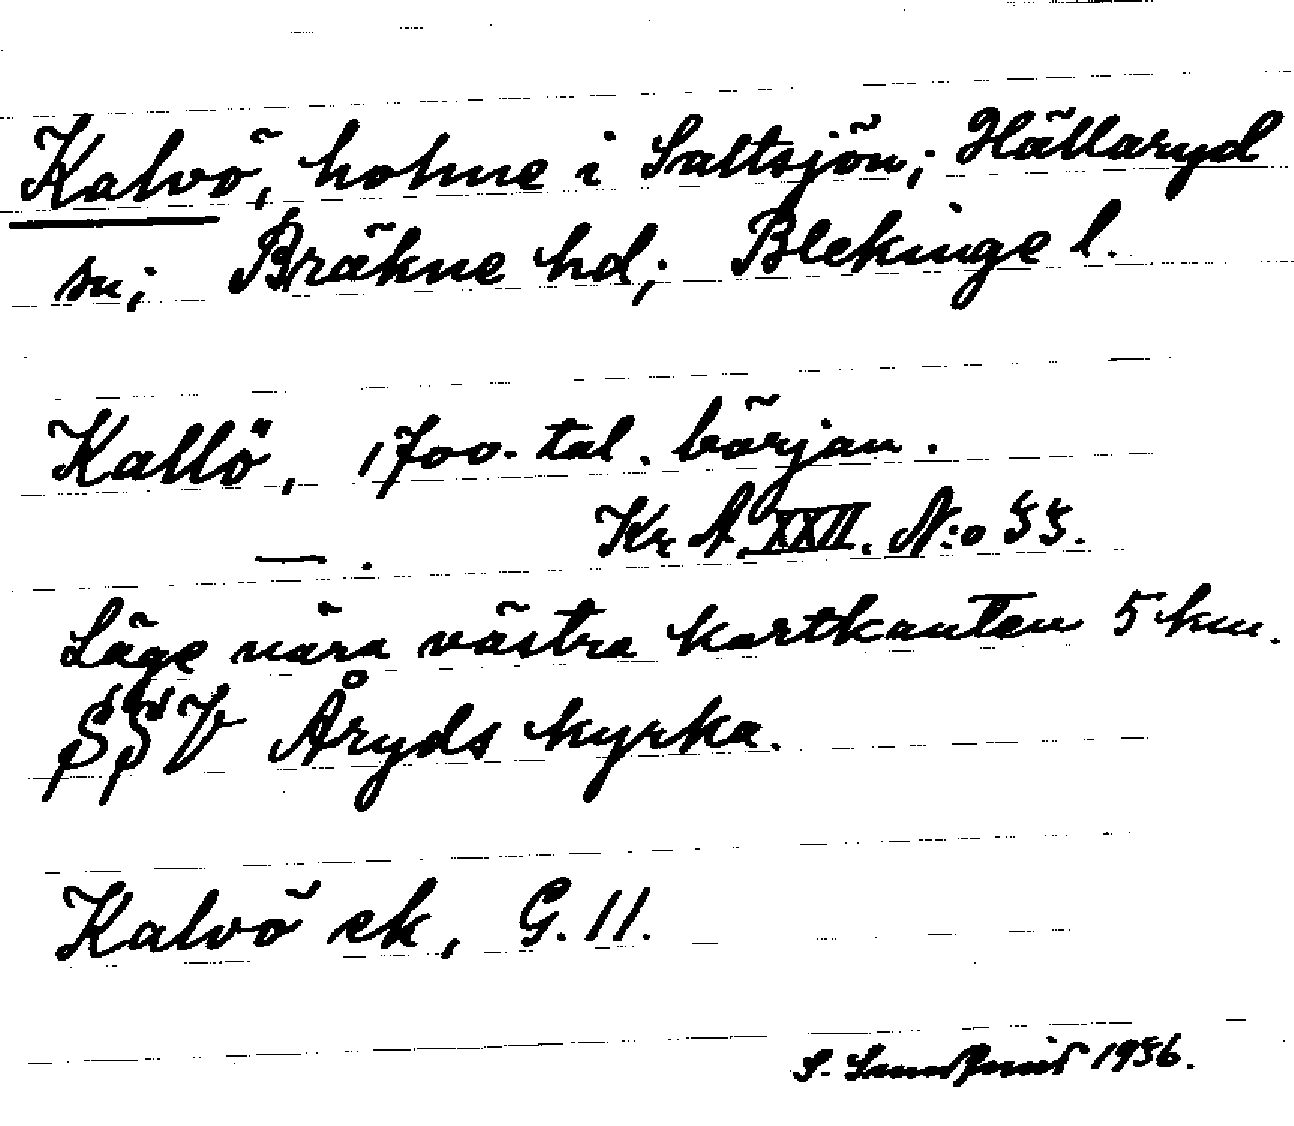 Kalvö, holme i Saltsjön; Hällaryd
sn; Bräkne hd; Blekinge l.
Kallö, 1700-tal. början.
Kr A XXII. N:o 55.
— .
Läge nära västra kartkanten 5 km.
SSV Åryds kyrka.
Kalvö ek, G. 11.
S. 1956.